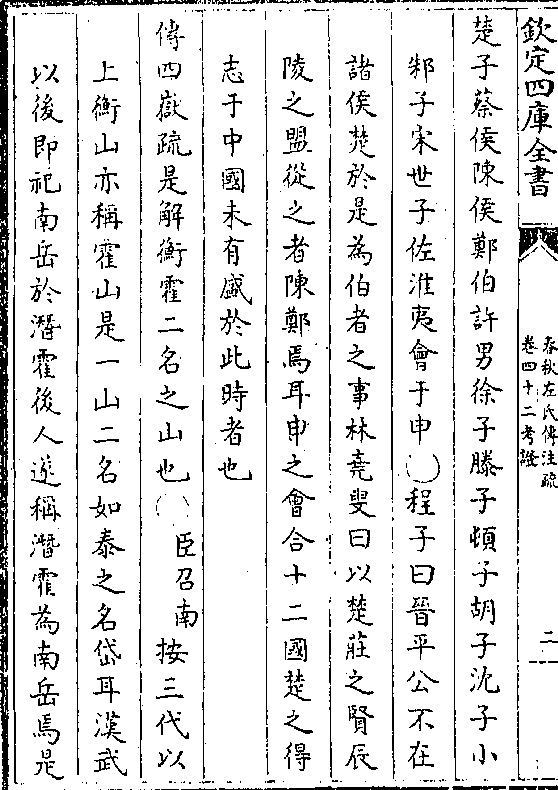 欽定四庫全書
春秋左氏傳注疏
卷四十二考證
二
楚子蔡侯陳侯鄭伯許男徐子滕子頓子胡子沈子小
邾子宋世子佐淮夷會于申〇程子曰晉平公不在
諸侯楚於是為伯者之事林堯叟曰以楚莊之賢辰
陵之盟從之者陳鄭焉耳申之會合十二國楚之得
志于中國未有盛於此時者也
傳四嶽疏是解衡霍二名之山也〇臣召南按三代以
上衡山亦稱霍山是一山二名如泰之名岱耳漢武
以後即祀南岳於潛霍後人遂稱潛霍為南岳焉是